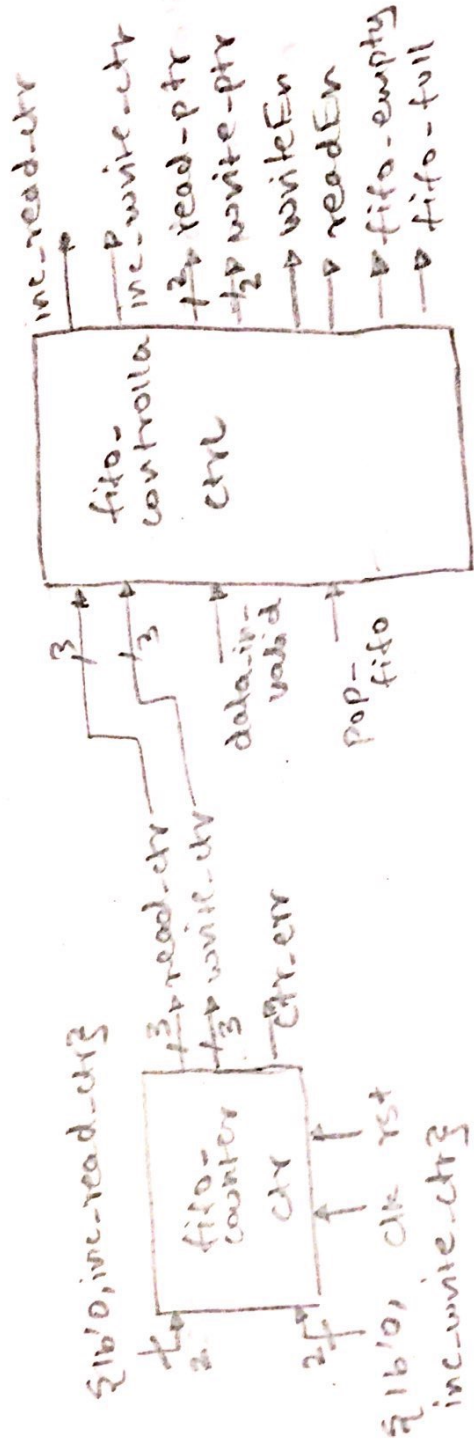 {1b'0, inc_read_ctr}
2
2
{1b'0,
inc_write_ctr}
fifo-
counter
ctr
clk
rst
3
read_ctr
3
write_ctr
ctr_err
3
3
data_in_
valid
pop_
fifo
fifo-
controlla
ctrl
inc_read_ctr
inc_write_ctr
2
read_ptr
2
write_ptr
writeEn
readEn
fifo_empty
fifo_full